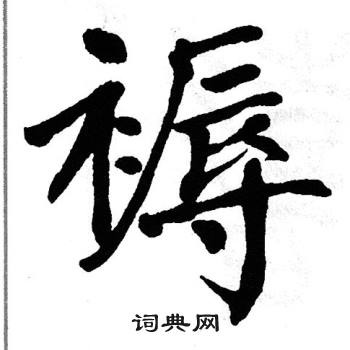 褥
词典网